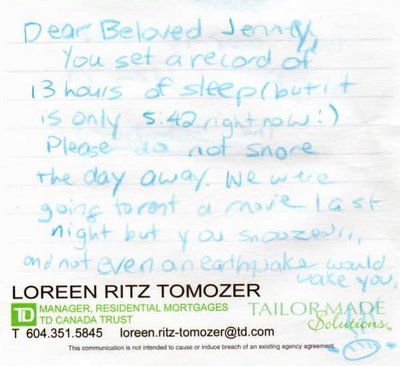 Dear Beloved Jenny,
You set a record of
13 hours of sleep(but it
is only 5:42 right now!)
Please do not snore
the day away. We were
going to rent a movie last
night but you snoozed!!,
and not even an earthquake would
wake you,
LOREEN RITZ TOMOZER
TD MANAGER, RESIDENTIAL MORTGAGES
TD CANADA TRUST
TAILOR-MADE
Solutions
T 604.351.5845 loreen.ritz-tomozer@td.com
This communication is not intended to cause or induce breach of an existing agency agreement.